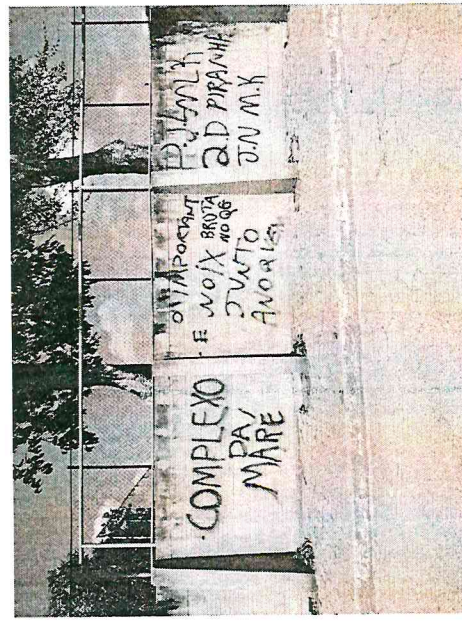 .COMPLEXO
DA
MARE
O IMPORTANT
.E NOIX BROTA
NO QG
JUNTO
PJLMLK
2.D PIRANHA
J.N M.K